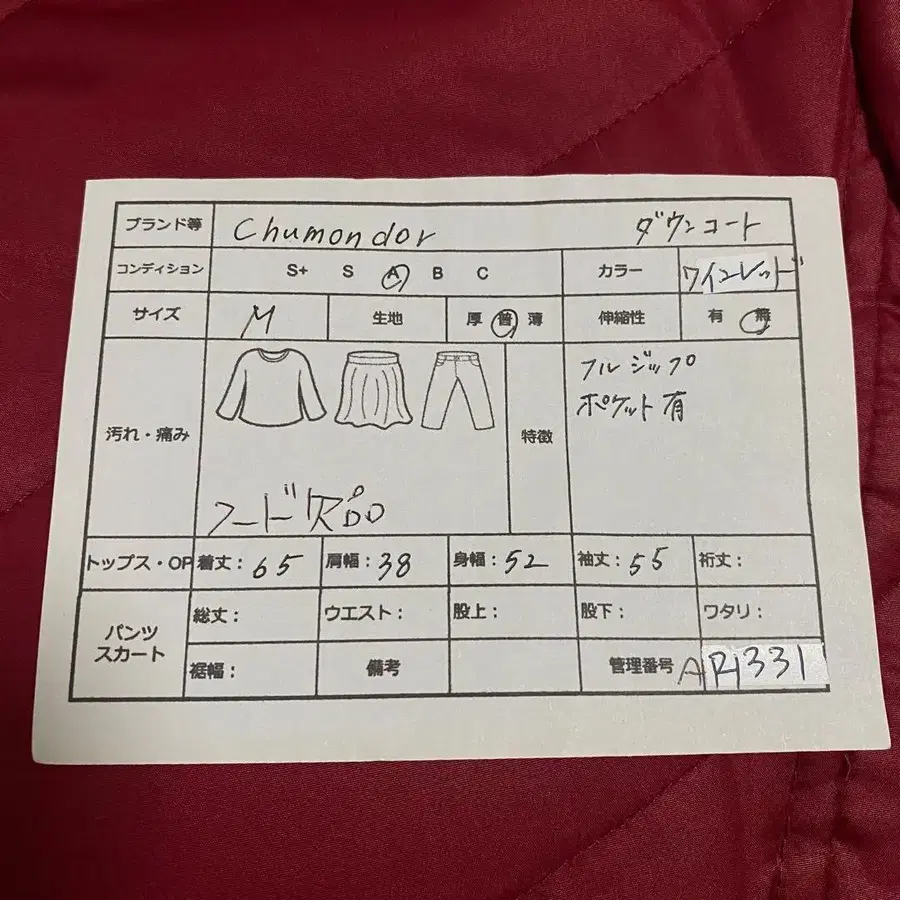 ブランド等 Chumondor ダウンコート
コンディション S+ S A B C カラー ワインレッド
サイズ M 生地 厚 普 薄 伸縮性 有 無
汚れ・痛み 特徴 フルジップ
ポケット有
フード欠品
トップス・OP 着丈：65 肩幅：38 身幅：52 袖丈：55 裄丈：
パンツ スカート 総丈： ウエスト： 股上： 股下： ワタリ：
裾幅： 備考 管理番号 AR1331